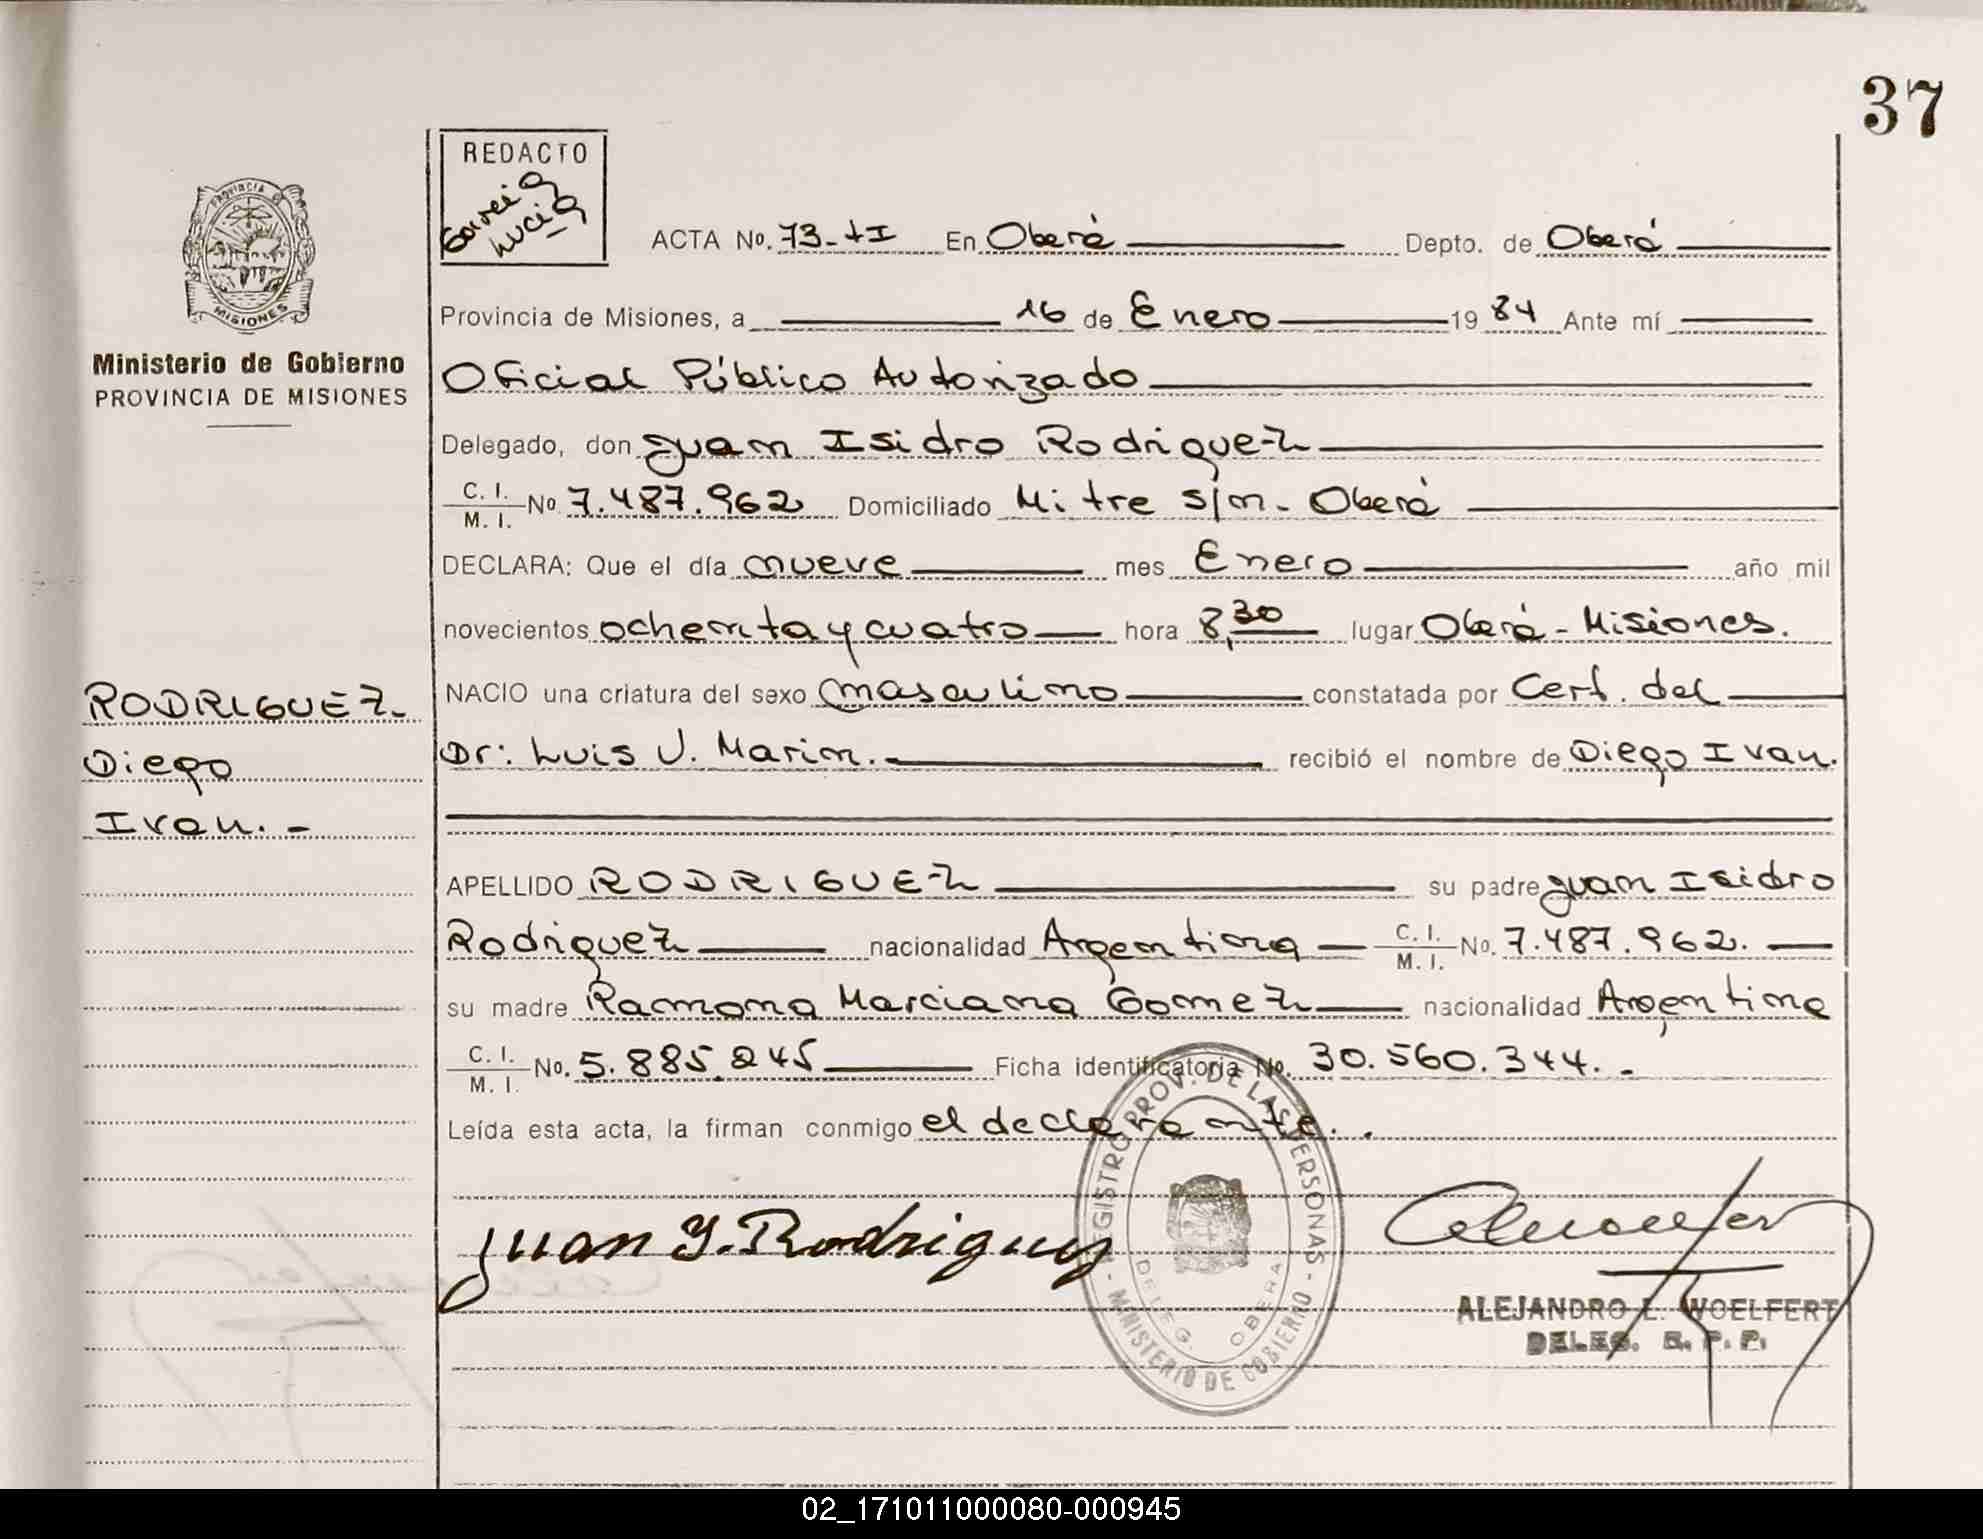 37
REDACTO
Lucia
ACTA No. 73-tI En Oberá Depto. de Oberá
PROVINCIA DE
MISIONES
Provincia de Misiones, a 16 de Enero 1984 Ante mí
Ministerio de Gobierno
PROVINCIA DE MISIONES
Oficial Público Autorizado
Delegado, don Juan Isidro Rodriguez
C. I.
M. I. No 7.487.962 Domiciliado Mitre s/n - Oberá
DECLARA: Que el día nueve mes Enero año mil
novecientos ochenta y cuatro hora 8,30 lugar Oberá - Misiones.
NACIO una criatura del sexo masculino constatada por Cert. del
Dr: Luis V. Marin. recibió el nombre de Diego Ivan.
RODRIGUEZ
Diego
Ivan. -
APELLIDO RODRIGUEZ su padre Juan Isidro
Rodriguez nacionalidad Argentina C. I.
M. I. No. 7.487.962.
su madre Ramona Marciana Gomez nacionalidad Argentina
C. I.
M. I. No. 5.885.245 Ficha identificatoria No. 30.560.344. -
Leída esta acta, la firman conmigo el declarante. .
Juan Y. Rodriguez
REGISTRO PROV. DE LAS PERSONAS - MINISTERIO DE GOBIERNO -
DELEG. OBERA
ALEJANDRO E. WOELFERT
DELEG. R. P. P.
02_171011000080-000945